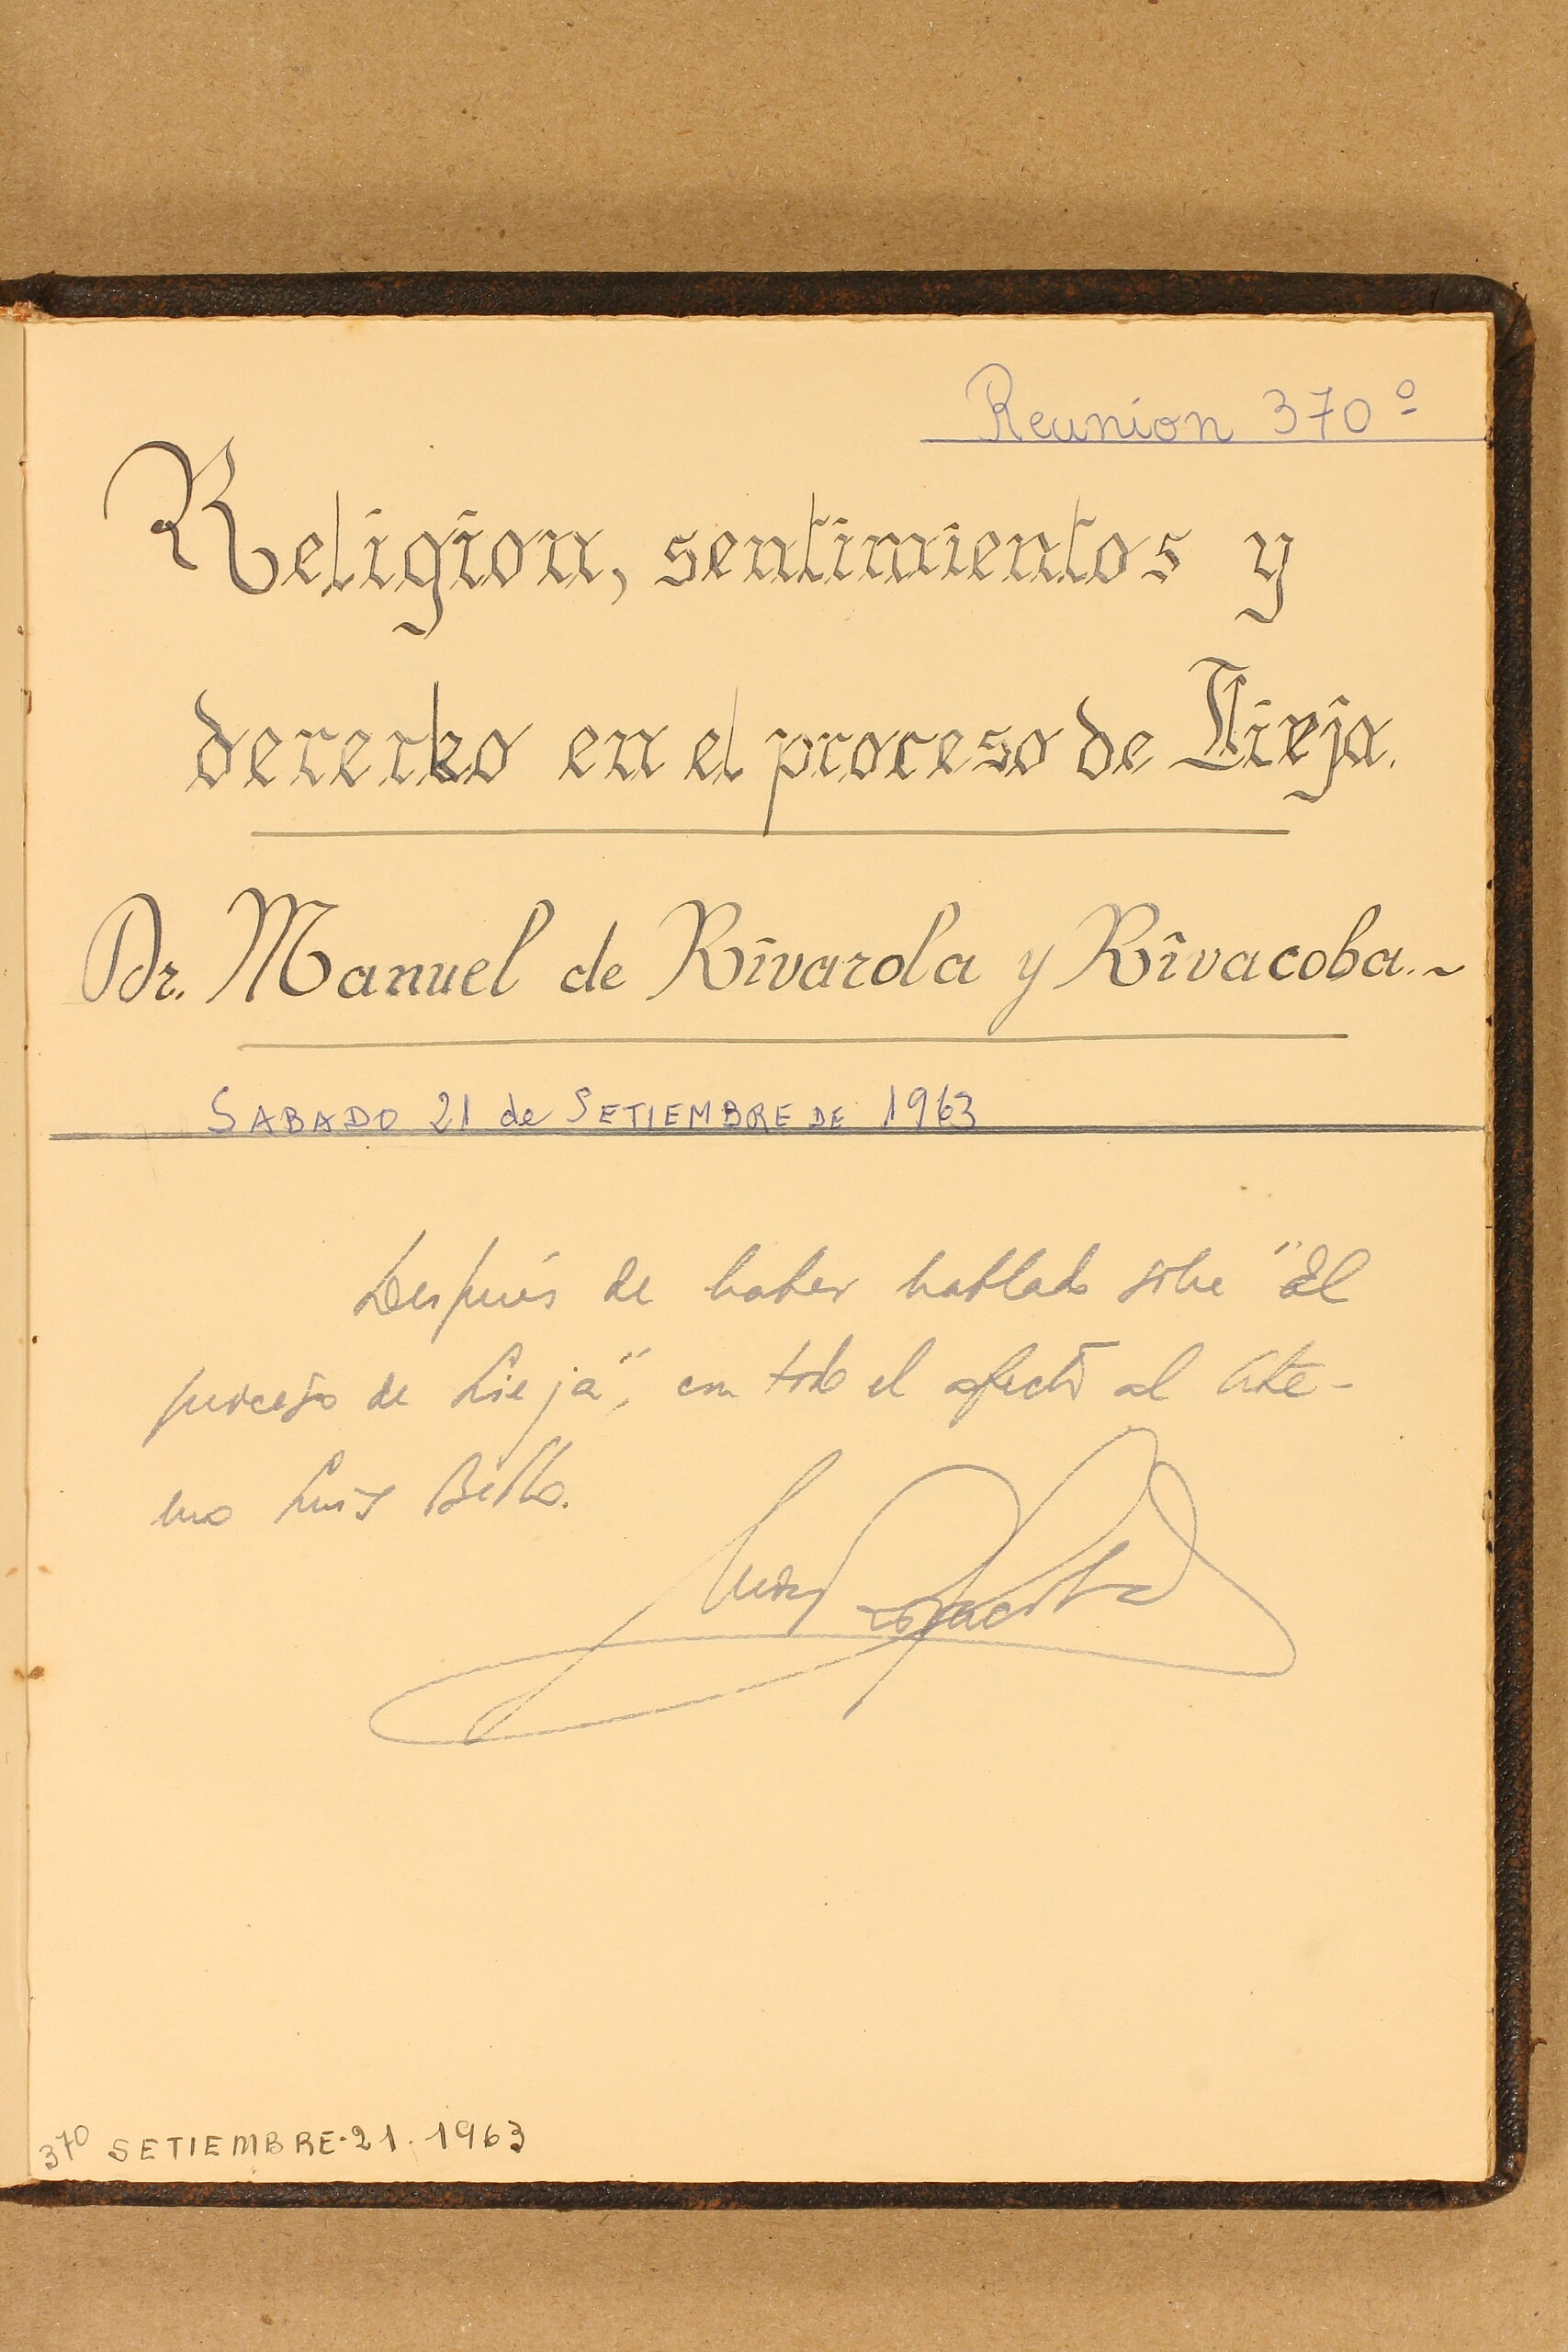 Reunion 370º
Religion, sentimientos y
derecho en el proceso de Lieja.
Dr. Manuel de Rivarola y Rivacoba.~
SABADO 21 de SETIEMBRE DE 1963
Después de haber hablado sobre "El
proceso de Lieja", con todo el afecto al Ate-
neo Luis Bello.
370 SETIEMBRE·21·1963